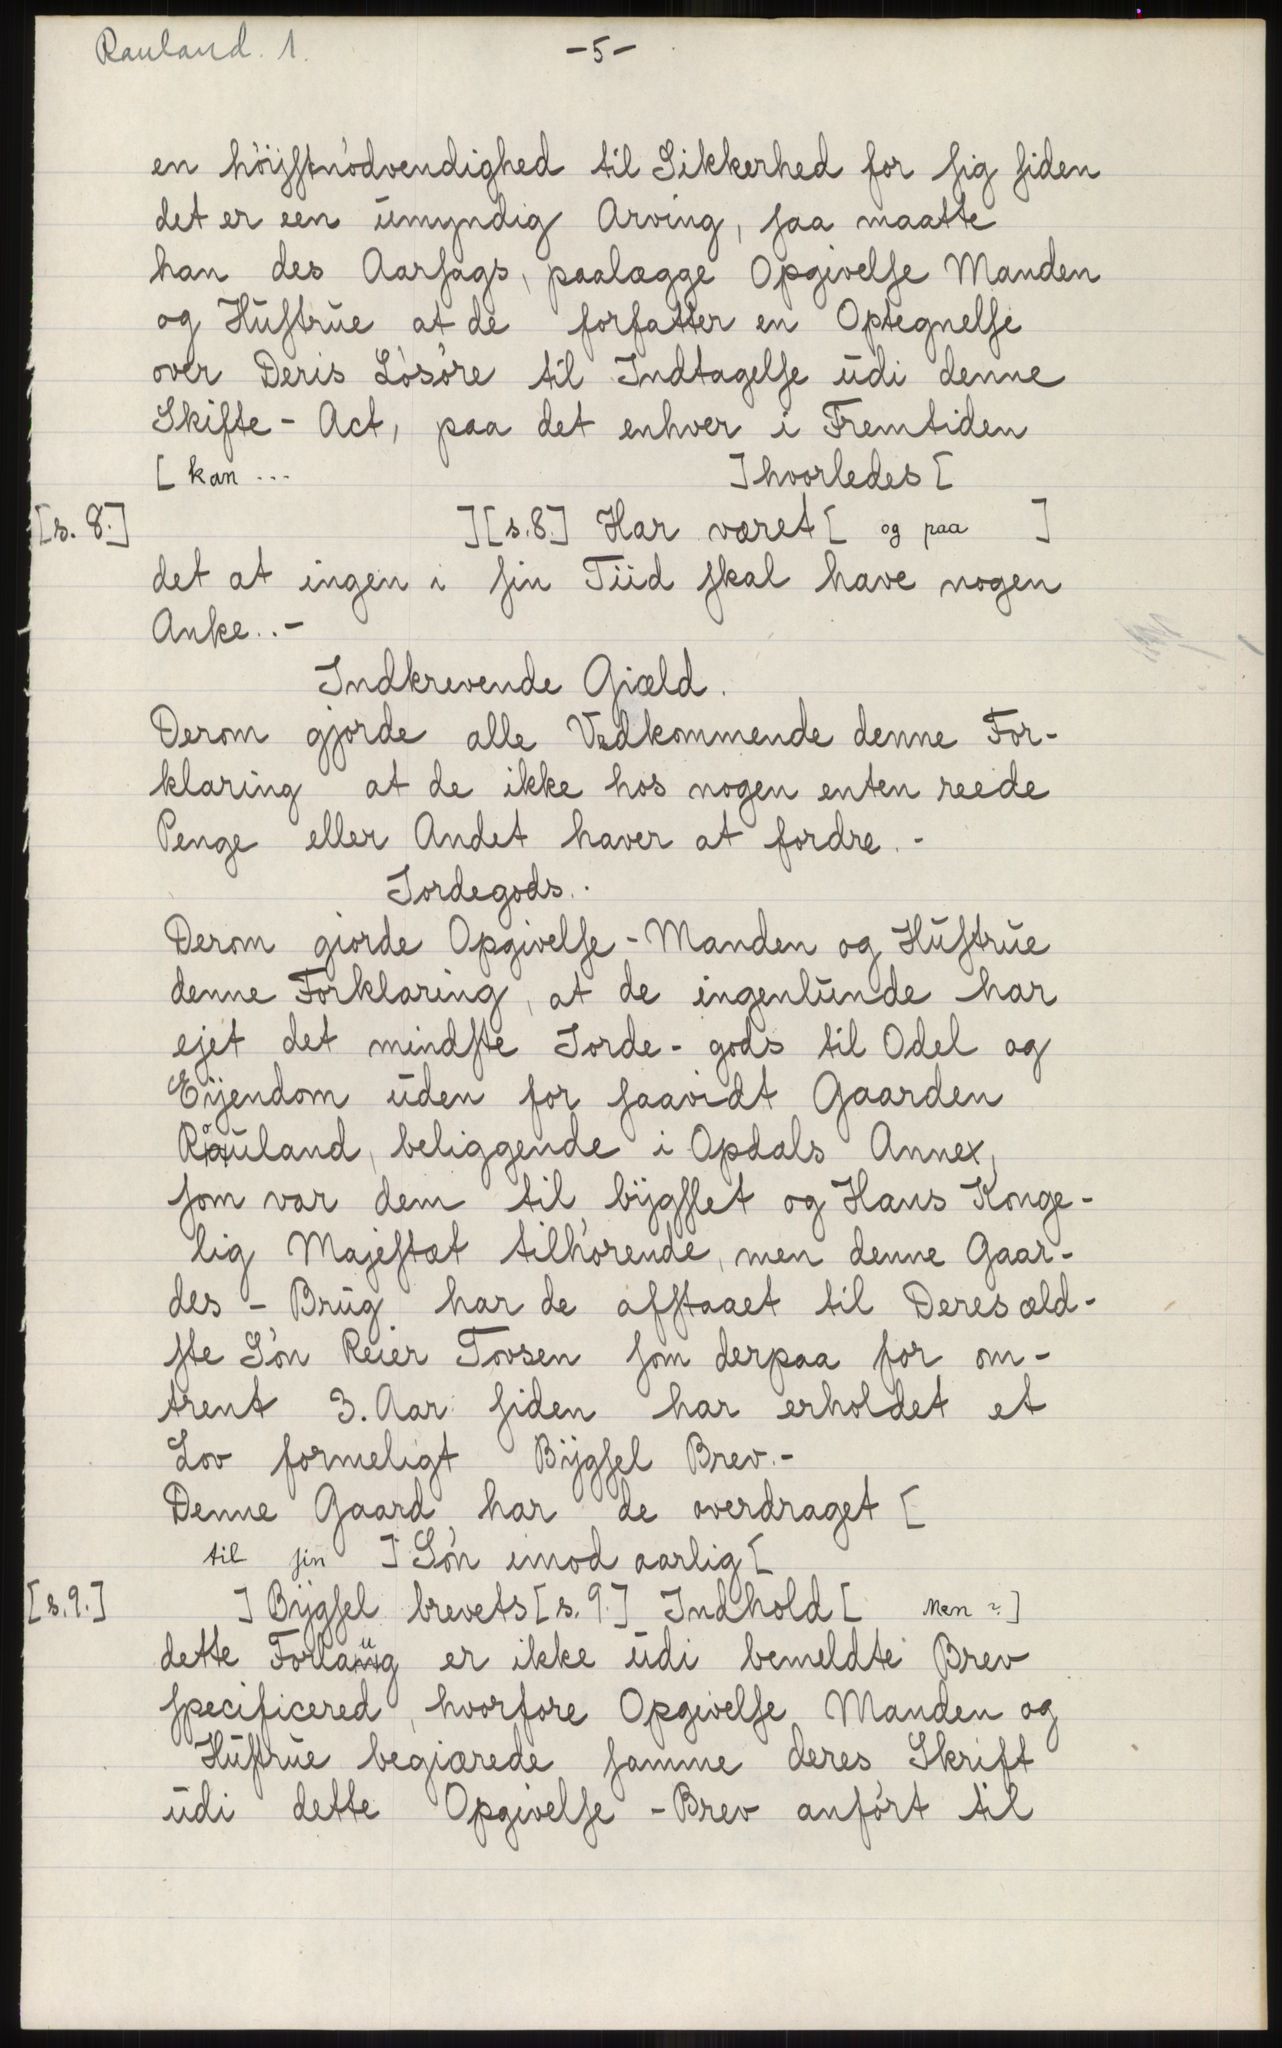 Rauland. 1.
-5-
en höijstnödvendighed til Sikkerhed for sig siden
det er een umyndig Arving, saa maatte
han des Aarsags, paalægge Opgivelse Manden
og Hustrue at de forfatter en Optegnelse
over Deris Lösöre til Indtagelse udi denne
Skifte - Act, paa det enhver i Fremtiden
[ kan ... ] hvorledes [
[s. 8.] ] [s.8.] Har været [ og paa ]
det at ingen i sin Tiid skal have nogen
Anke..-
Indkrevende Giæld.
Derom gjorde alle Vedkommende denne For-
klaring at de ikke hos nogen enten reede
Penge eller Andet haver at fordre.-
Jordegods..
Derom giorde Opgivelse - Manden og Hustrue
denne Forklaring, at de ingenlunde har
ejet det mindste Jorde - gods til Odel og
Eijendom uden for saavidt Gaarden
Rauland, beliggende i Opdals Annex,
som var dem til bijgslet og Hans Konge-
lig Majestæt tilhörende, men denne Gaar-
des - Brug har de afstaaet til Deres æld-
ste Sön Reier Tovsen som derpaa for om-
trent 3. Aar siden har erholdet et
Lov formeligt Bijgsel Brev.-
Denne Gaard har de overdraget [
til sin ] Sön imod aarlig [
[s.9.] ] Bijgsel brevets [s. 9.] Indhold [ Men ? ]
dette Forlaug er ikke udi bemeldte Brev
specificered, hvorfore Opgivelse Manden og
Hustrue begiærede samme deres Skrift
udi dette Opgivelse - Brev anfört til